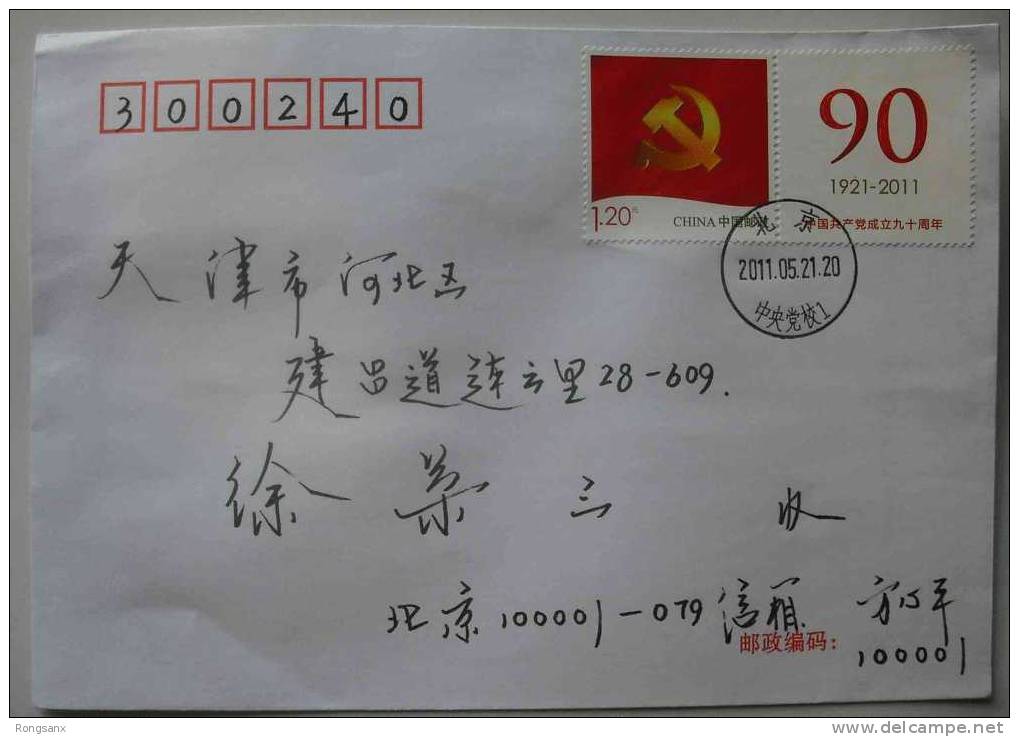 300240
90
1921-2011
1.20元
CHINA 中国邮政
中国共产党成立九十周年
北京
2011.05.21.20
中央党校1
天津市河北区
建昌道连云里28-609.
徐荣三 收
北京100001-079信箱
邮政编码:
100001
Rongsanx
www.delcampe.net